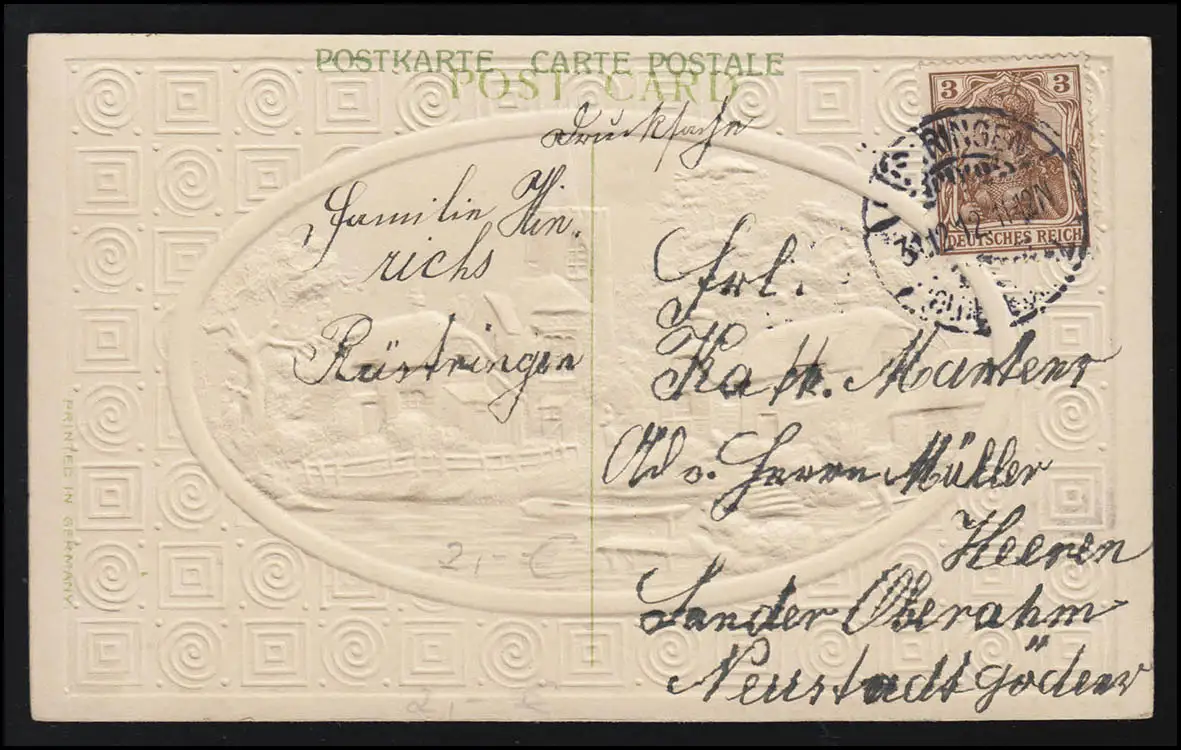 POSTKARTE CARTE POSTALE
POST CARD
Drucksache
Familie Hin.
richs
Rüstringen
3 3
DEUTSCHES REICH
RINGEN
12.12. 11-12N
Frl.
Kath. Martens
Ad v. Herrn Müller
Heeren
Sander Oberahm
Neustadtgödens
PRINTED IN GERMANY
2,- €
2,- €